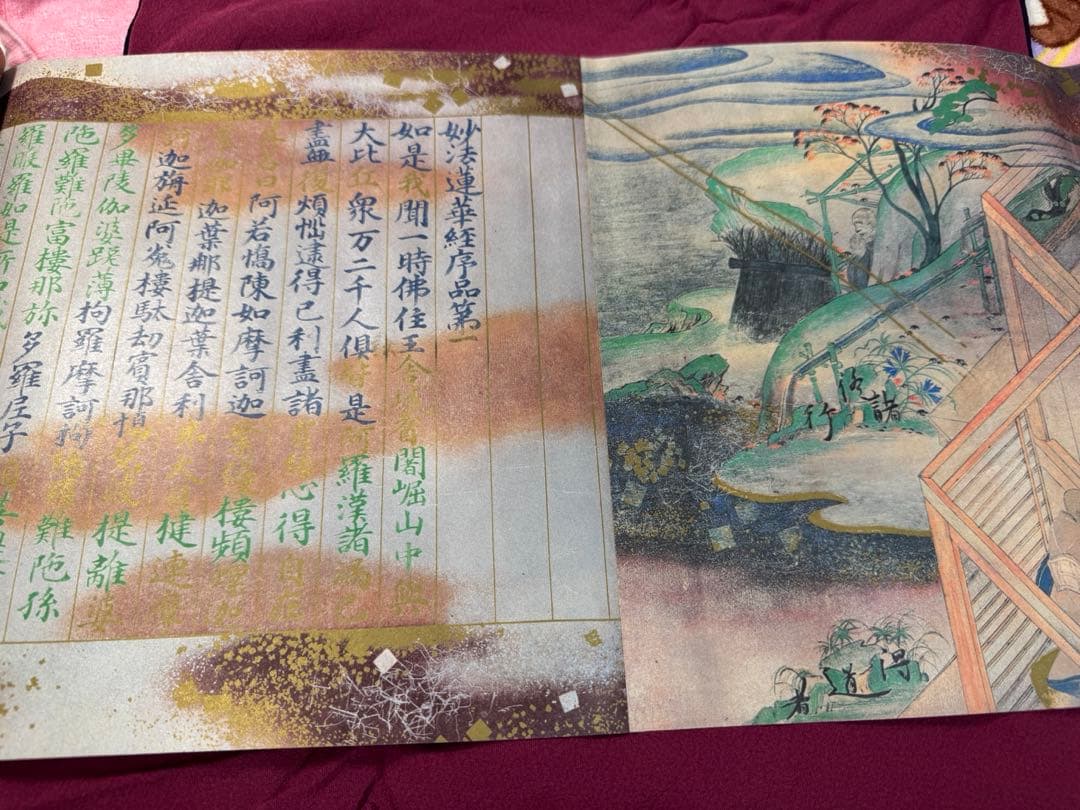 諸
修
行
得道者
妙法蓮華経序品第一
如是我聞一時佛住王舍城耆闍崛山中與
大比丘衆万二千人俱皆是阿羅漢諸漏已
盡無復煩惱逮得己利盡諸有結心得自在
其名曰阿若憍陳如摩訶迦葉優樓頻螺迦
迦葉那提迦葉舍利弗大目揵連摩
訶迦旃延阿㝹樓馱劫賓那憍梵波提離婆
多畢陵伽婆蹉薄拘羅摩訶拘絺羅難陁孫
陁羅難陁富樓那弥多羅尼子
羅睺羅如是